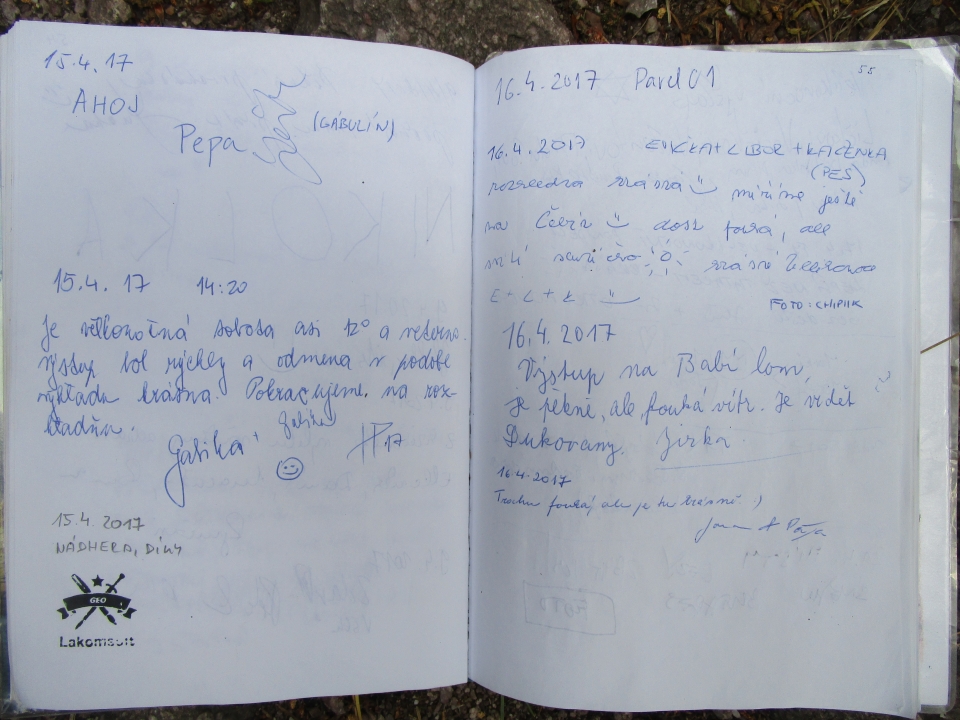 15.4.17
AHOJ
Pepa
(GÁBULÍN)
15.4. 17 14:20
Je velkonočná sobota asi 12° a veterno.
výstup bol rýchly a odmena v podobe
výhľadu krásna. Pokračujeme. na roz-
hladňu.
17
15.4.2017
NÁDHERA, DÍKY
GEO
Lakomsoit
55
16.4.2017 Pavel01
16.4.2017 EVIČKA + LIBOR + KAČENKA
(PES)
rozhledna krásná míříme ještě
na dost fouká, ale
krásné Velikonoce
E + L + K
FOTO: CHIPIIK
16.4.2017
Výstup na Babí lom,
je pěkně, ale fouká vítr. Je vidět
Dukovany. Jirka
16.4.2017
Trochu fouká, ale je tu krásně :)
FOTO